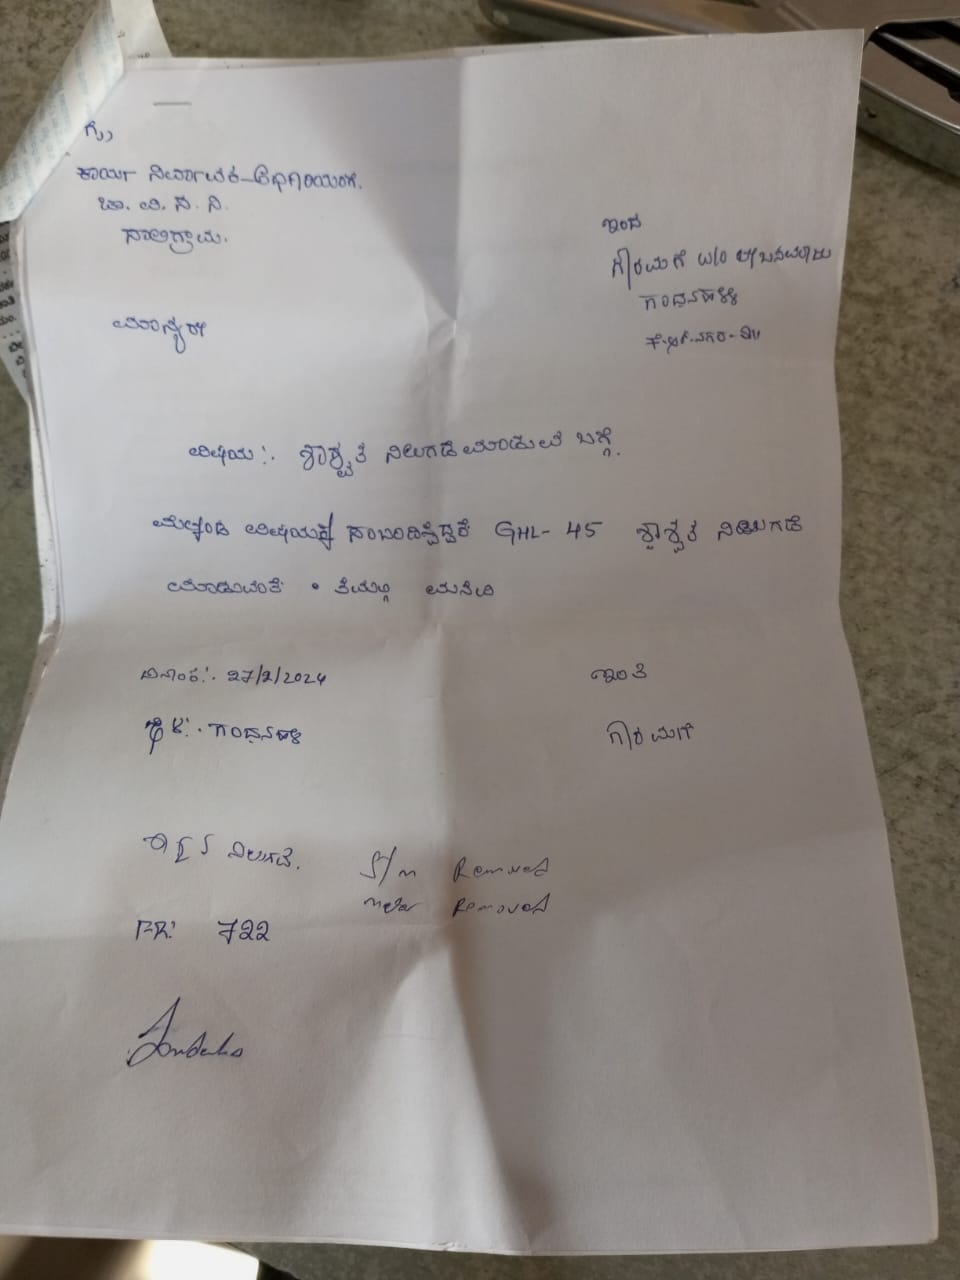 ಗೆ,
ಕಾರ್ಯ ನಿರ್ವಾಹಕ ಅಧಿಕಾರಿಯವರಿಗೆ.
ಚಾ. ವಿ. ಸ. ನಿ.
ಸಾಲಿಗ್ರಾಮ.
ಇಂದ
ಗೌರಮ್ಮ W/O
ಗಂಧನಹಳ್ಳಿ
ಕೆ.ಆರ್.ನಗರ-ತಾ||
ಮಾನ್ಯರೇ
ವಿಷಯ:. ಶಾಶ್ವತ ನಿಲುಗಡೆ ಮಾಡುವ ಬಗ್ಗೆ.
ಮೇಲ್ಕಂಡ ವಿಷಯಕ್ಕೆ ಸಂಬಂದಿಸಿದ್ದಂತೆ GHL-45 ಶಾಶ್ವತ ನಿಲುಗಡೆ
ಮಾಡುವಂತೆ . ತಮಲ್ಲಿ ಮನವಿ
ದಿನಾಂಕ:. 27/2/2024
ಇಂತಿ
ಸ್ಥಳ:. ಗಂಧನಹಳ್ಳಿ
ನಿಲುಗಡೆ. S/m Removed
meter Removed
FR: 722